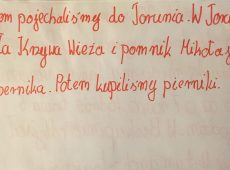 em pojechaliśmy do Torunia. W Toru
ła Krzywa Wieża i pomnik Mikołaj
pernika. Potem kupiliśmy pierniki.